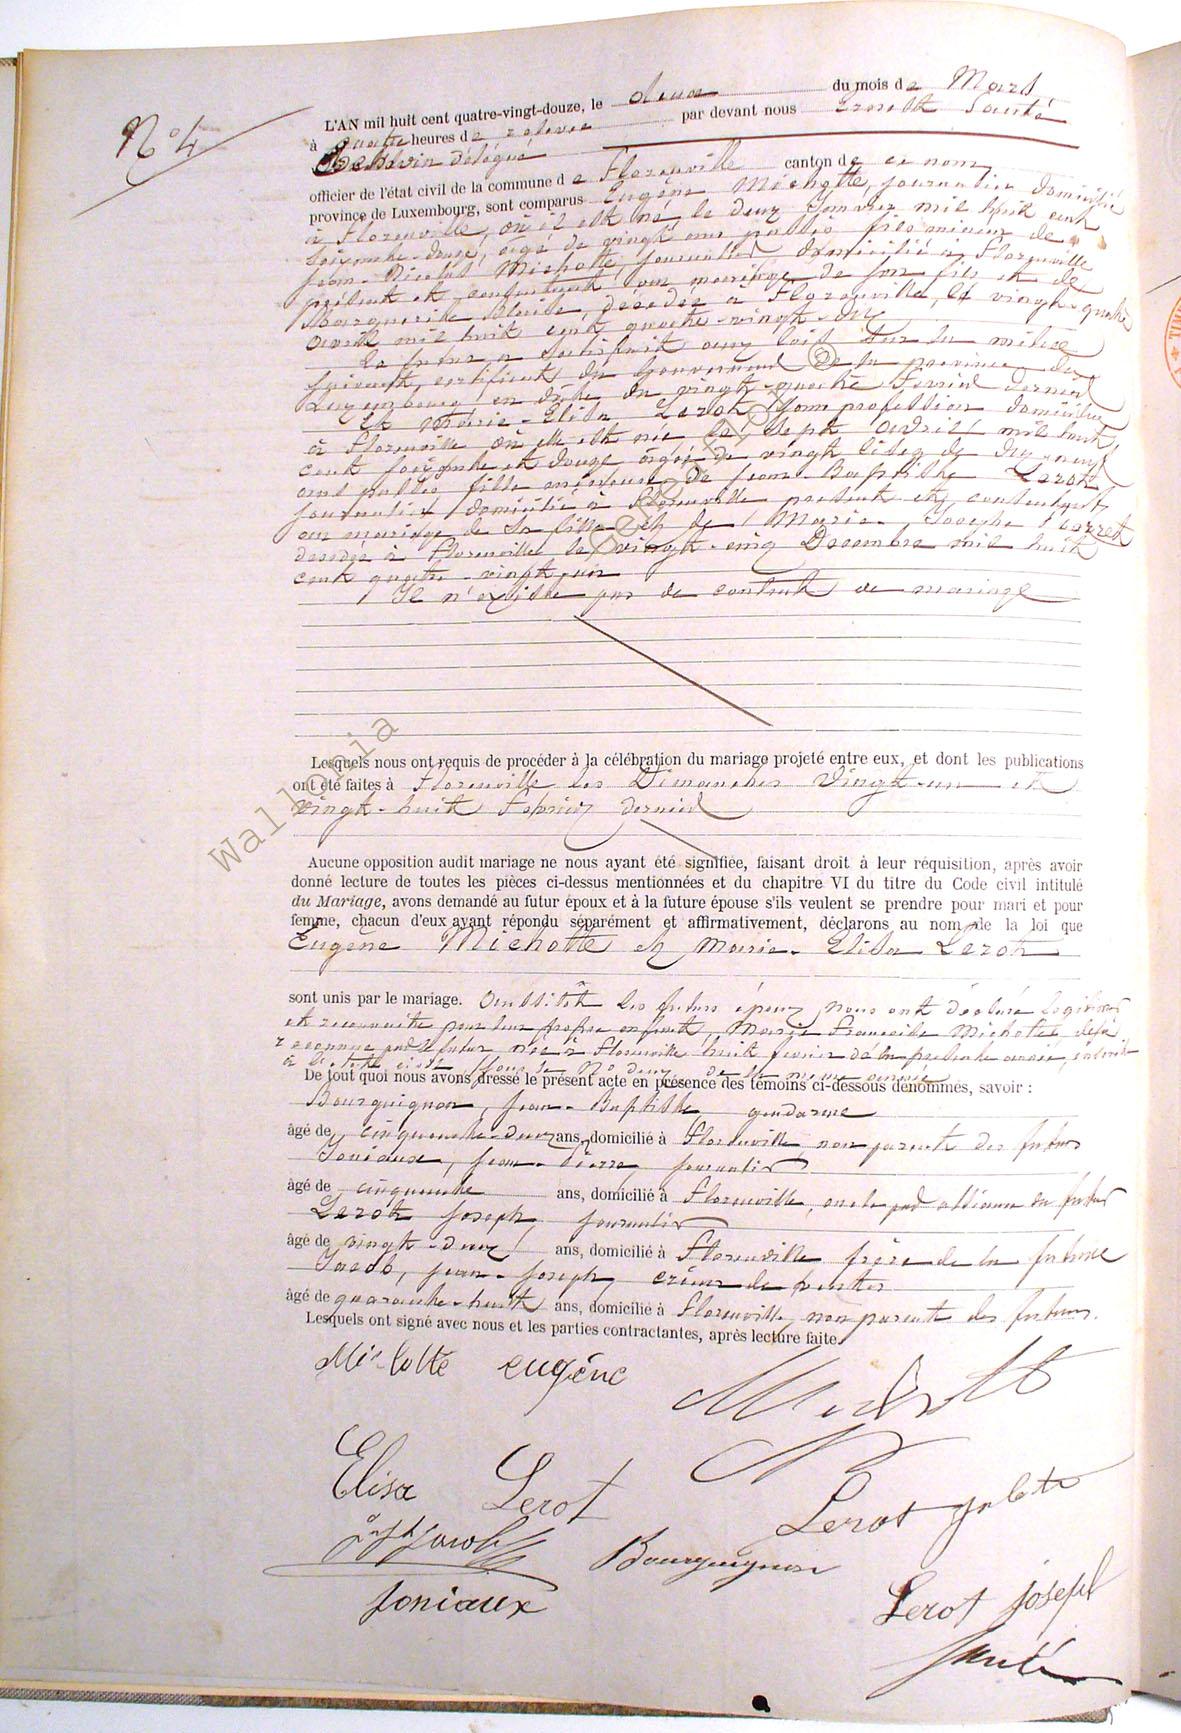 N° 4
L'AN mil huit cent quatre-vingt-douze, le deux du mois de Mars
à quatre heures de relevée par devant nous Ernest Santé
Echevin délégué
officier de l'état civil de la commune de Florenville canton de ce nom
province de Luxembourg, sont comparus Eugène Michotte, journalier domicilié
à Florenville, où il est né le deux Janvier mil huit cent
soixante-douze, âgé de vingt ans passés fils mineur de
Jean-Nicolas Michotte, journalier, domicilié à Florenville
présent et consentant au mariage de son fils et de
Marguerite décédée à Florenville, le vingt-quatre
avril mil huit cent quatre-vingt-dix
Le futur a satisfait aux lois sur la milice
suivant certificat du Gouverneur de la province de
Luxembourg en date du vingt-quatre Février dernier
Et Marie-Elisa Lerot sans profession domiciliée
à Florenville où elle est née le sept Avril mil huit
cent soixante et douze âgée de dix-neuf
ans passés fille mineure de Jean-Baptiste Lerot
journalier domicilié à Florenville présent et consentant
au mariage de sa fille et de Marie-Josephe
décédée à Florenville le vingt-cinq Décembre mil huit
cent quatre-vingt
Il n'existe pas de contrat de mariage
Lesquels nous ont requis de procéder à la célébration du mariage projeté entre eux, et dont les publications
ont été faites à Florenville les Dimanches vingt-un et
vingt-huit Février dernier
Aucune opposition audit mariage ne nous ayant été signifiée, faisant droit à leur réquisition, après avoir
donné lecture de toutes les pièces ci-dessus mentionnées et du chapitre VI du titre du Code civil intitulé
du Mariage, avons demandé au futur époux et à la future épouse s'ils veulent se prendre pour mari et pour
femme, chacun d'eux ayant répondu séparément et affirmativement, déclarons au nom de la loi que
Eugène Michotte et Marie-Elisa Lerot
sont unis par le mariage. Aussitôt les futurs époux nous ont déclaré légitimer
et reconnaître pour leur propre enfant, Marie Michotte, déjà
reconnue par le futur née à Florenville huit février de la présente année, inscrite
à l'état civil sous le N° deux de la même année
De tout quoi nous avons dressé le présent acte en présence des témoins ci-dessous dénommés, savoir :
Bourguignon, Jean-Baptiste, gendarme
âgé de cinquante-deux ans, domicilié à Florenville, non parent des futurs
Joniaux, Jean-Pierre, journalier
âgé de cinquante ans, domicilié à Florenville, oncle par alliance du futur
Lerot Joseph, journalier
âgé de vingt-deux ans, domicilié à Florenville frère de la future
Jacob, Jean-Joseph, crieur de ventes
âgé de quarante-huit ans, domicilié à Florenville, non parent des futurs.
Lesquels ont signé avec nous et les parties contractantes, après lecture faite.
Michotte eugène
Elisa Lerot
Lerot
Jacob
Bourguignon
Joniaux
Lerot joseph
Santé
Wallonia Genealfror ©